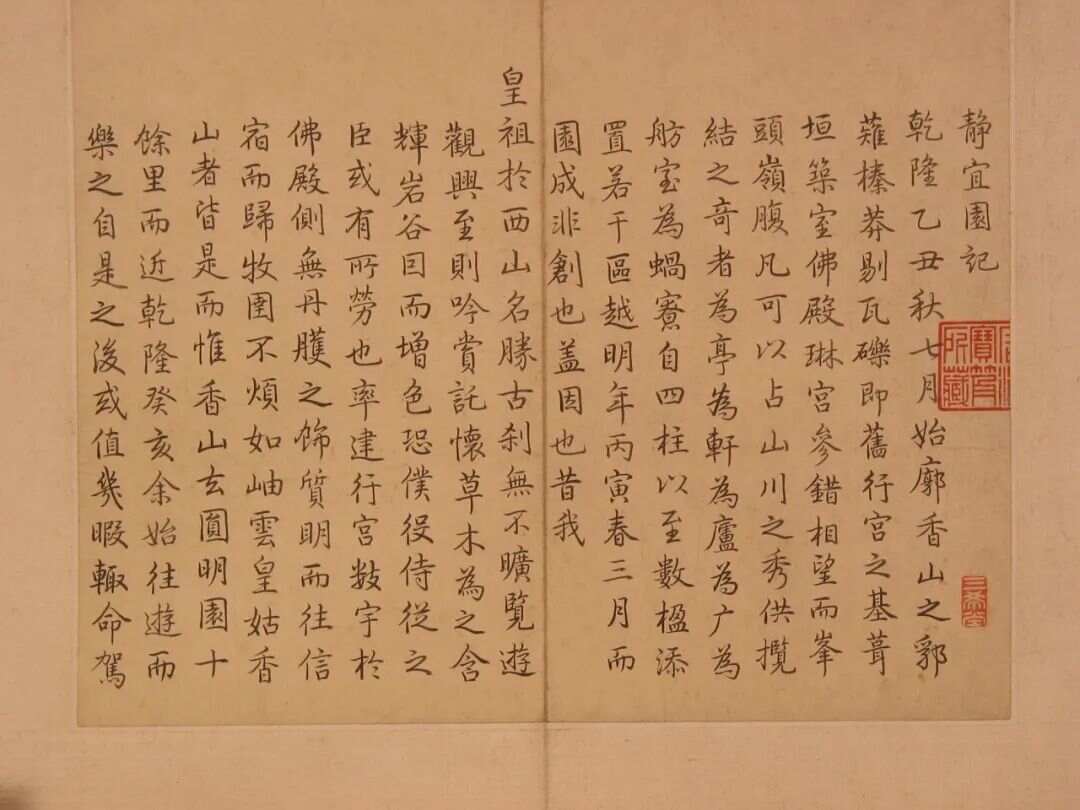 静宜園記
乾隆乙丑秋七月始廓香山之郛
薙榛莽剔瓦礫即舊行宮之基葺
垣築室佛殿琳宮參錯相望而峯
頭嶺腹凡可以占山川之秀供攬
結之竒者為亭為軒為廬為广為
舫室為蝸寮自四柱以至數楹添
置若干區越明年丙寅春三月而
園成非創也盖因也昔我
皇祖於西山名勝古刹無不曠覽遊
觀興至則吟賞託懷草木為之含
輝岩谷因而增色恐僕役侍從之
臣或有所勞也率建行宮数宇於
佛殿側無丹雘之飾質明而往信
宿而歸牧圉不煩如岫雲皇姑香
山者皆是而惟香山去圓明園十
餘里而近乾隆癸亥余始往遊而
樂之自是之後或值幾暇輒命駕
石渠寶笈所藏
三希堂